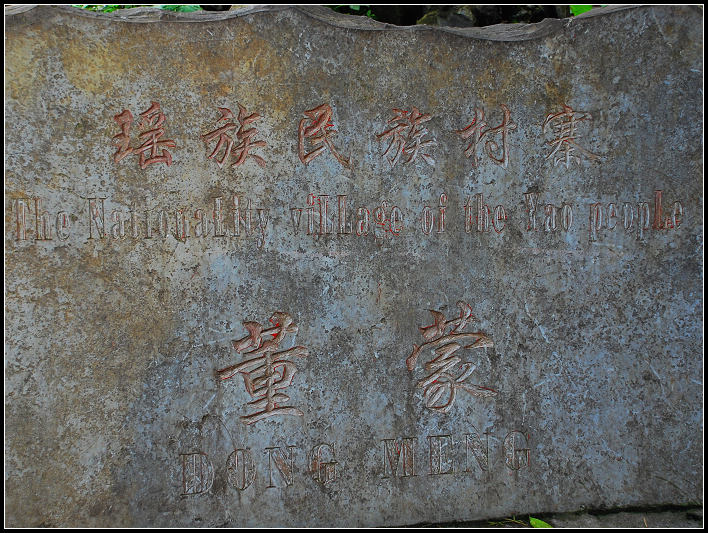 瑶族民族村寨
The NationaLity viLLage of the Yao peopLe
董蒙
DONG MENG